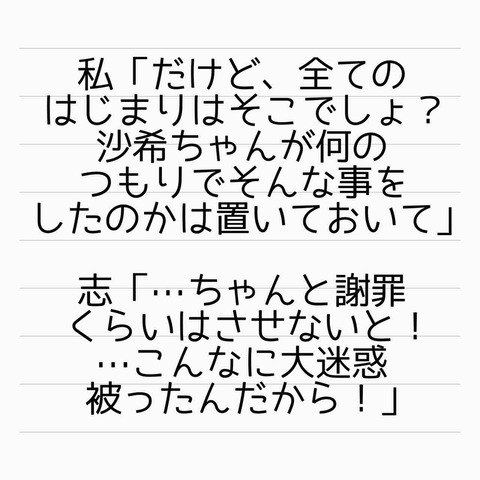 私「だけど、全ての
はじまりはそこでしょ？
沙希ちゃんが何の
つもりでそんな事を
したのかは置いておいて」
志「…ちゃんと謝罪
くらいはさせないと！
…こんなに大迷惑
被ったんだから！」